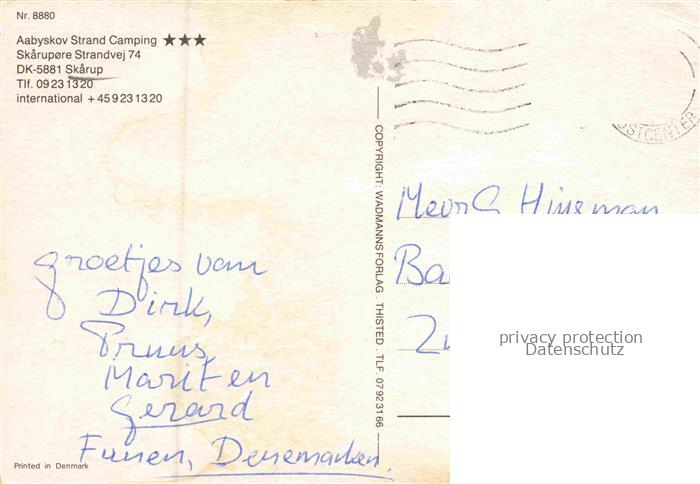 Nr. 8880
Aabyskov Strand Camping ★★★
Skårupøre Strandvej 74
DK-5881 Skårup
Tlf. 09 23 13 20
international + 45 9 23 13 20
OSTCENTER
COPYRIGHT: WADMANNSFORLAG . THISTED . TLF. 07 92 31 66
groetjes van
Dirk,
Truus,
Marit en
Gerard
Funen, Denemarken.
Printed in Denmark
Mevr G
Ba
Zu
privacy protection
Datenschutz